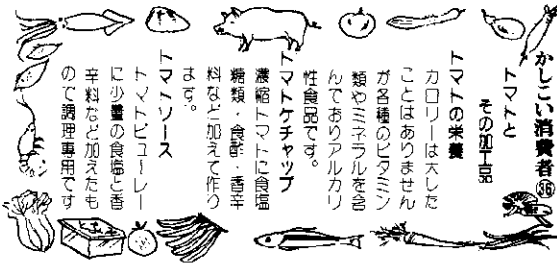 かしこい消費者㊱
トマトと
その加工品
トマトの栄養
カロリーは大した
ことはありません
が各種のビタミン
類やミネラルを含
んでおりアルカリ
性食品です。
トマトケチャップ
濃縮トマトに食塩
糖類・食酢・香辛
料など加えて作り
ます。
トマトソース
トマトピューレー
に少量の食塩と香
辛料など加えたも
ので調理専用です